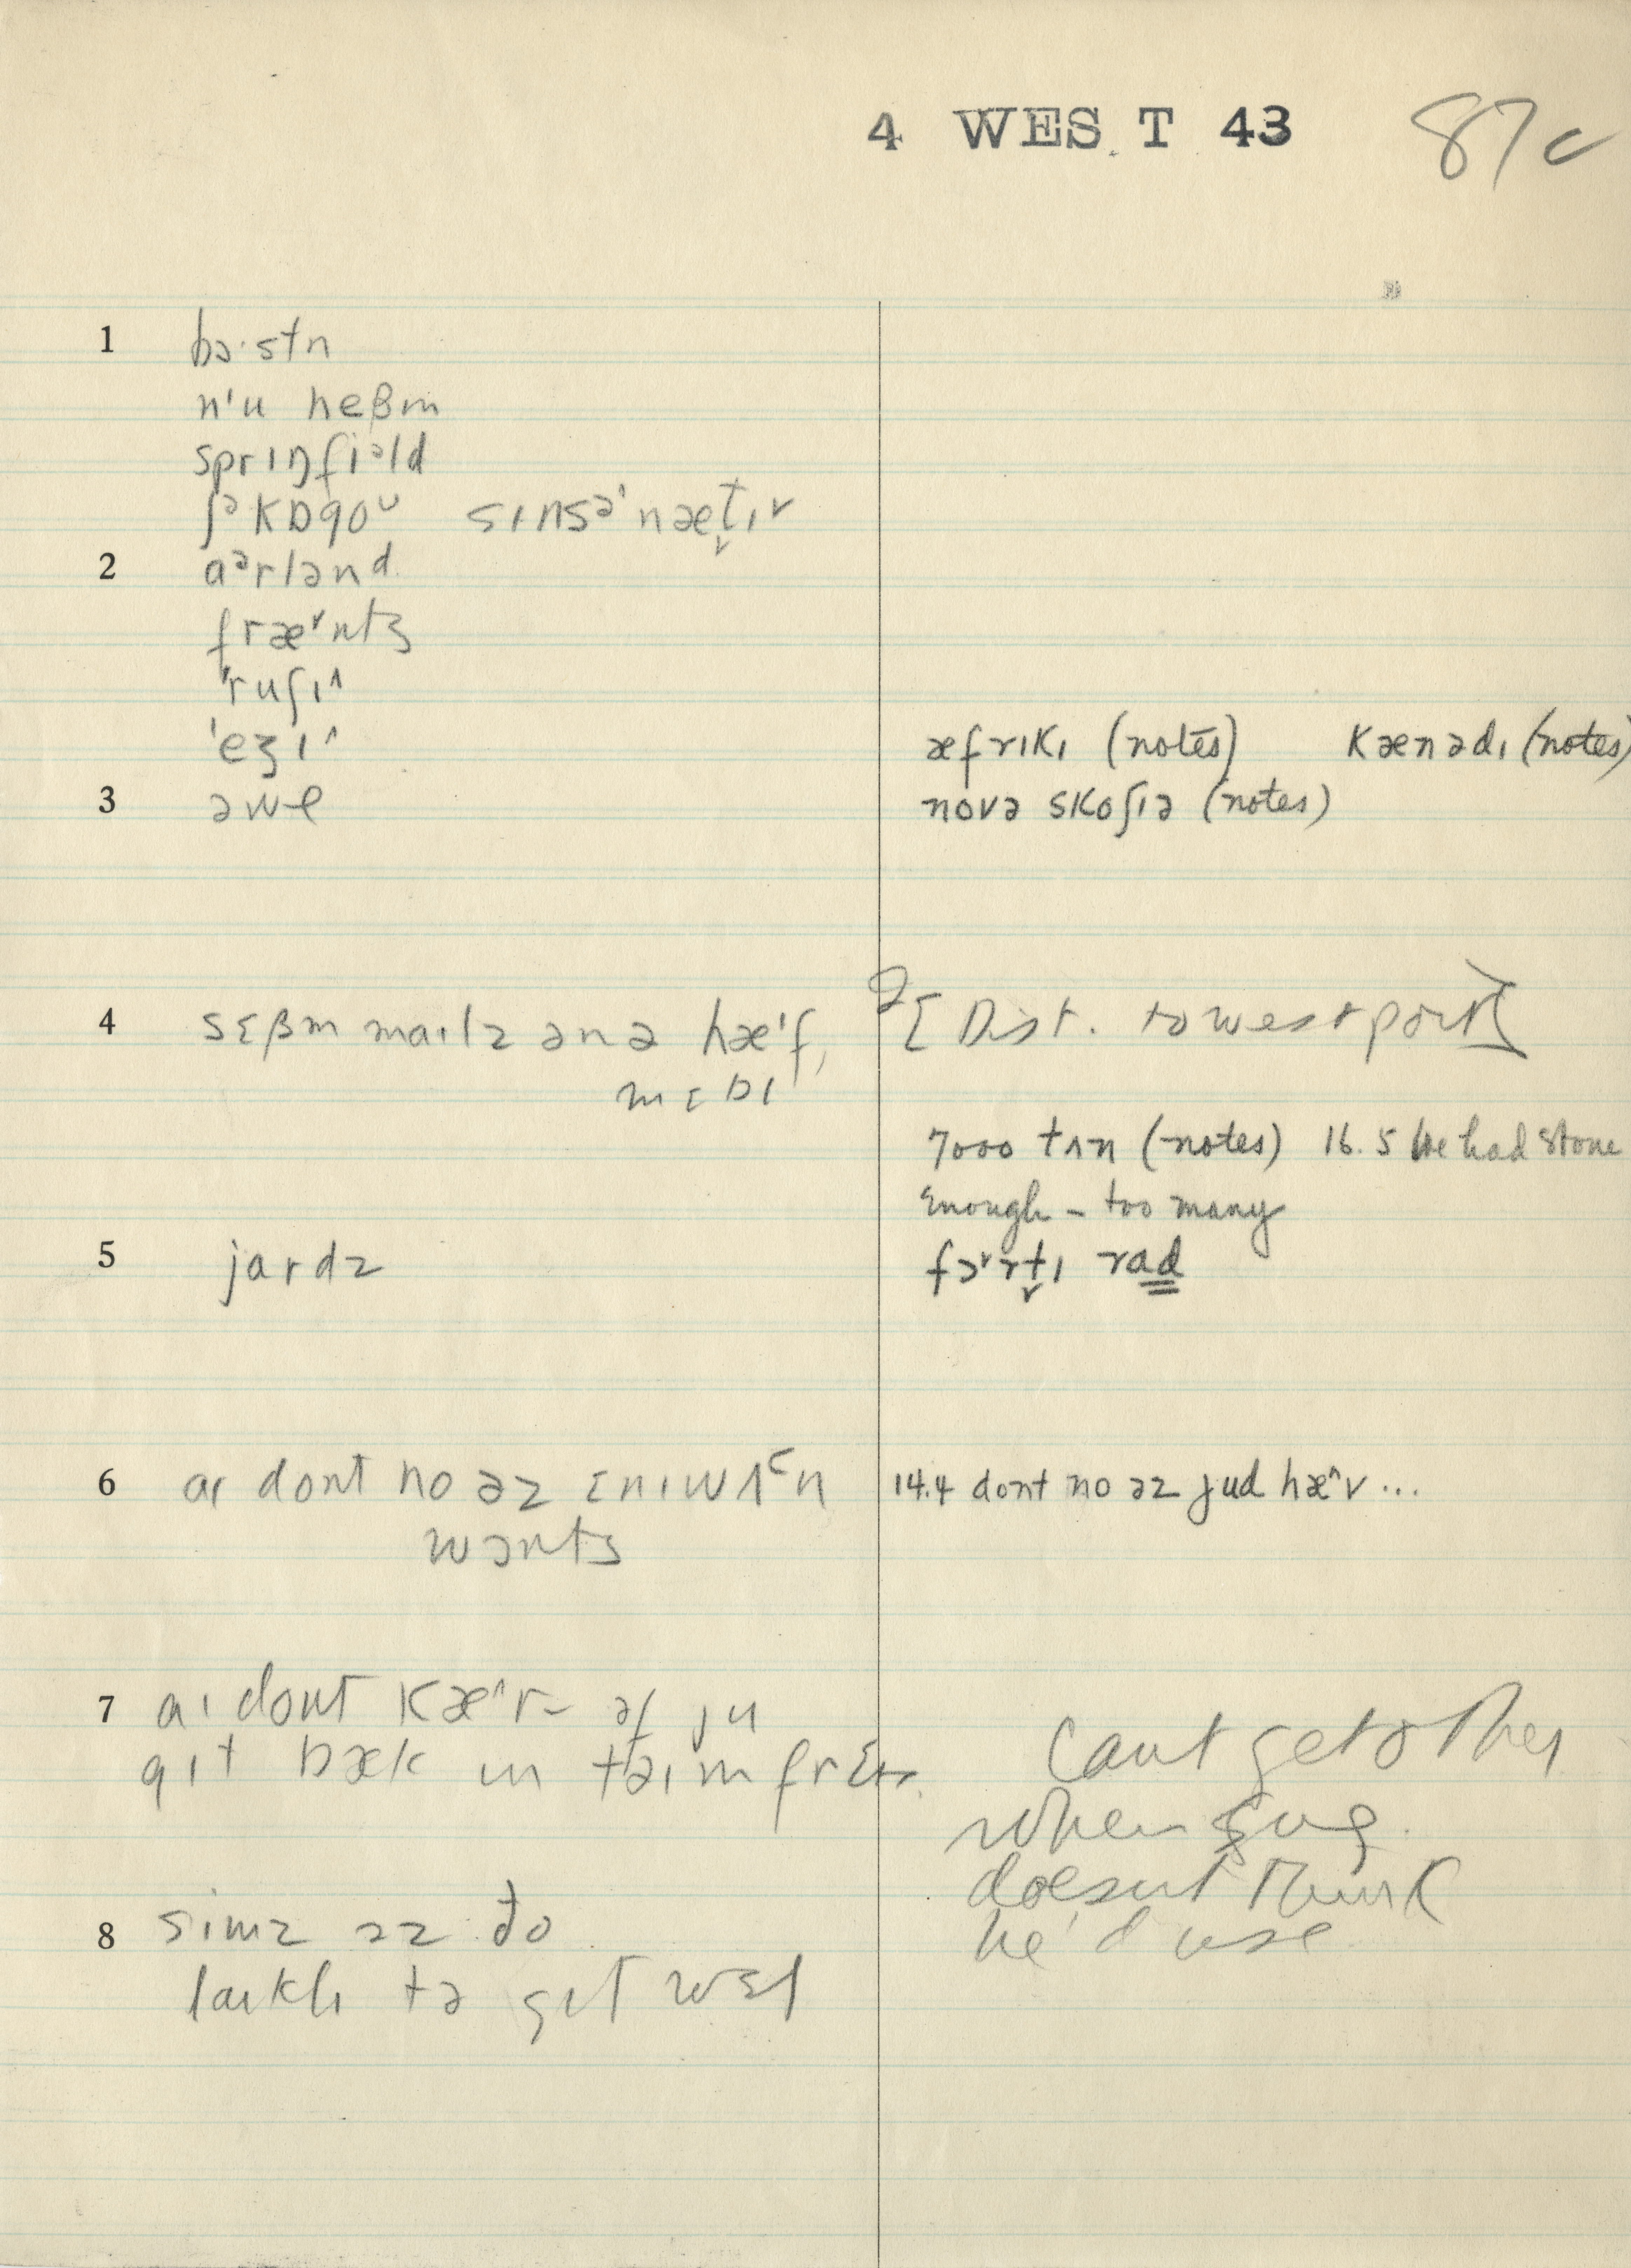 4 WEST 43 87c
1 bɔ·stn
n'u heβm
sprɪŋfiᵊld
ʃᵊkɒgoᵁ sɪnsə'næt̬ɪ˅
2 aᵊrlənd
fræ˅nts
'ruʃɪ^
'eʒɪ^
æfrɪkɪ (notes) kænədɪ (notes)
3 əwe
novə skoʃɪə (notes)
4 sɛβm maɪlz ənə hæ'f,
[Dist. to westport]
mɛbɪ
7000 tʌn (notes) 16.5 We had stone
enough – too many
5 jardz
fɔ˅rt̬ɪ rad
6 aɪ dont no əz ɛnɪwʌᶜn
wɔnts
14.4 dont no əz jud hæ^v ...
7 aɪ dont kæ^r– əf ju
gɪt bæk ɪn taɪm frɛ
cant get other
when
doesn't think
he'd use
8 simz əz ðo
laɪklɪ tə gɪt wɛl